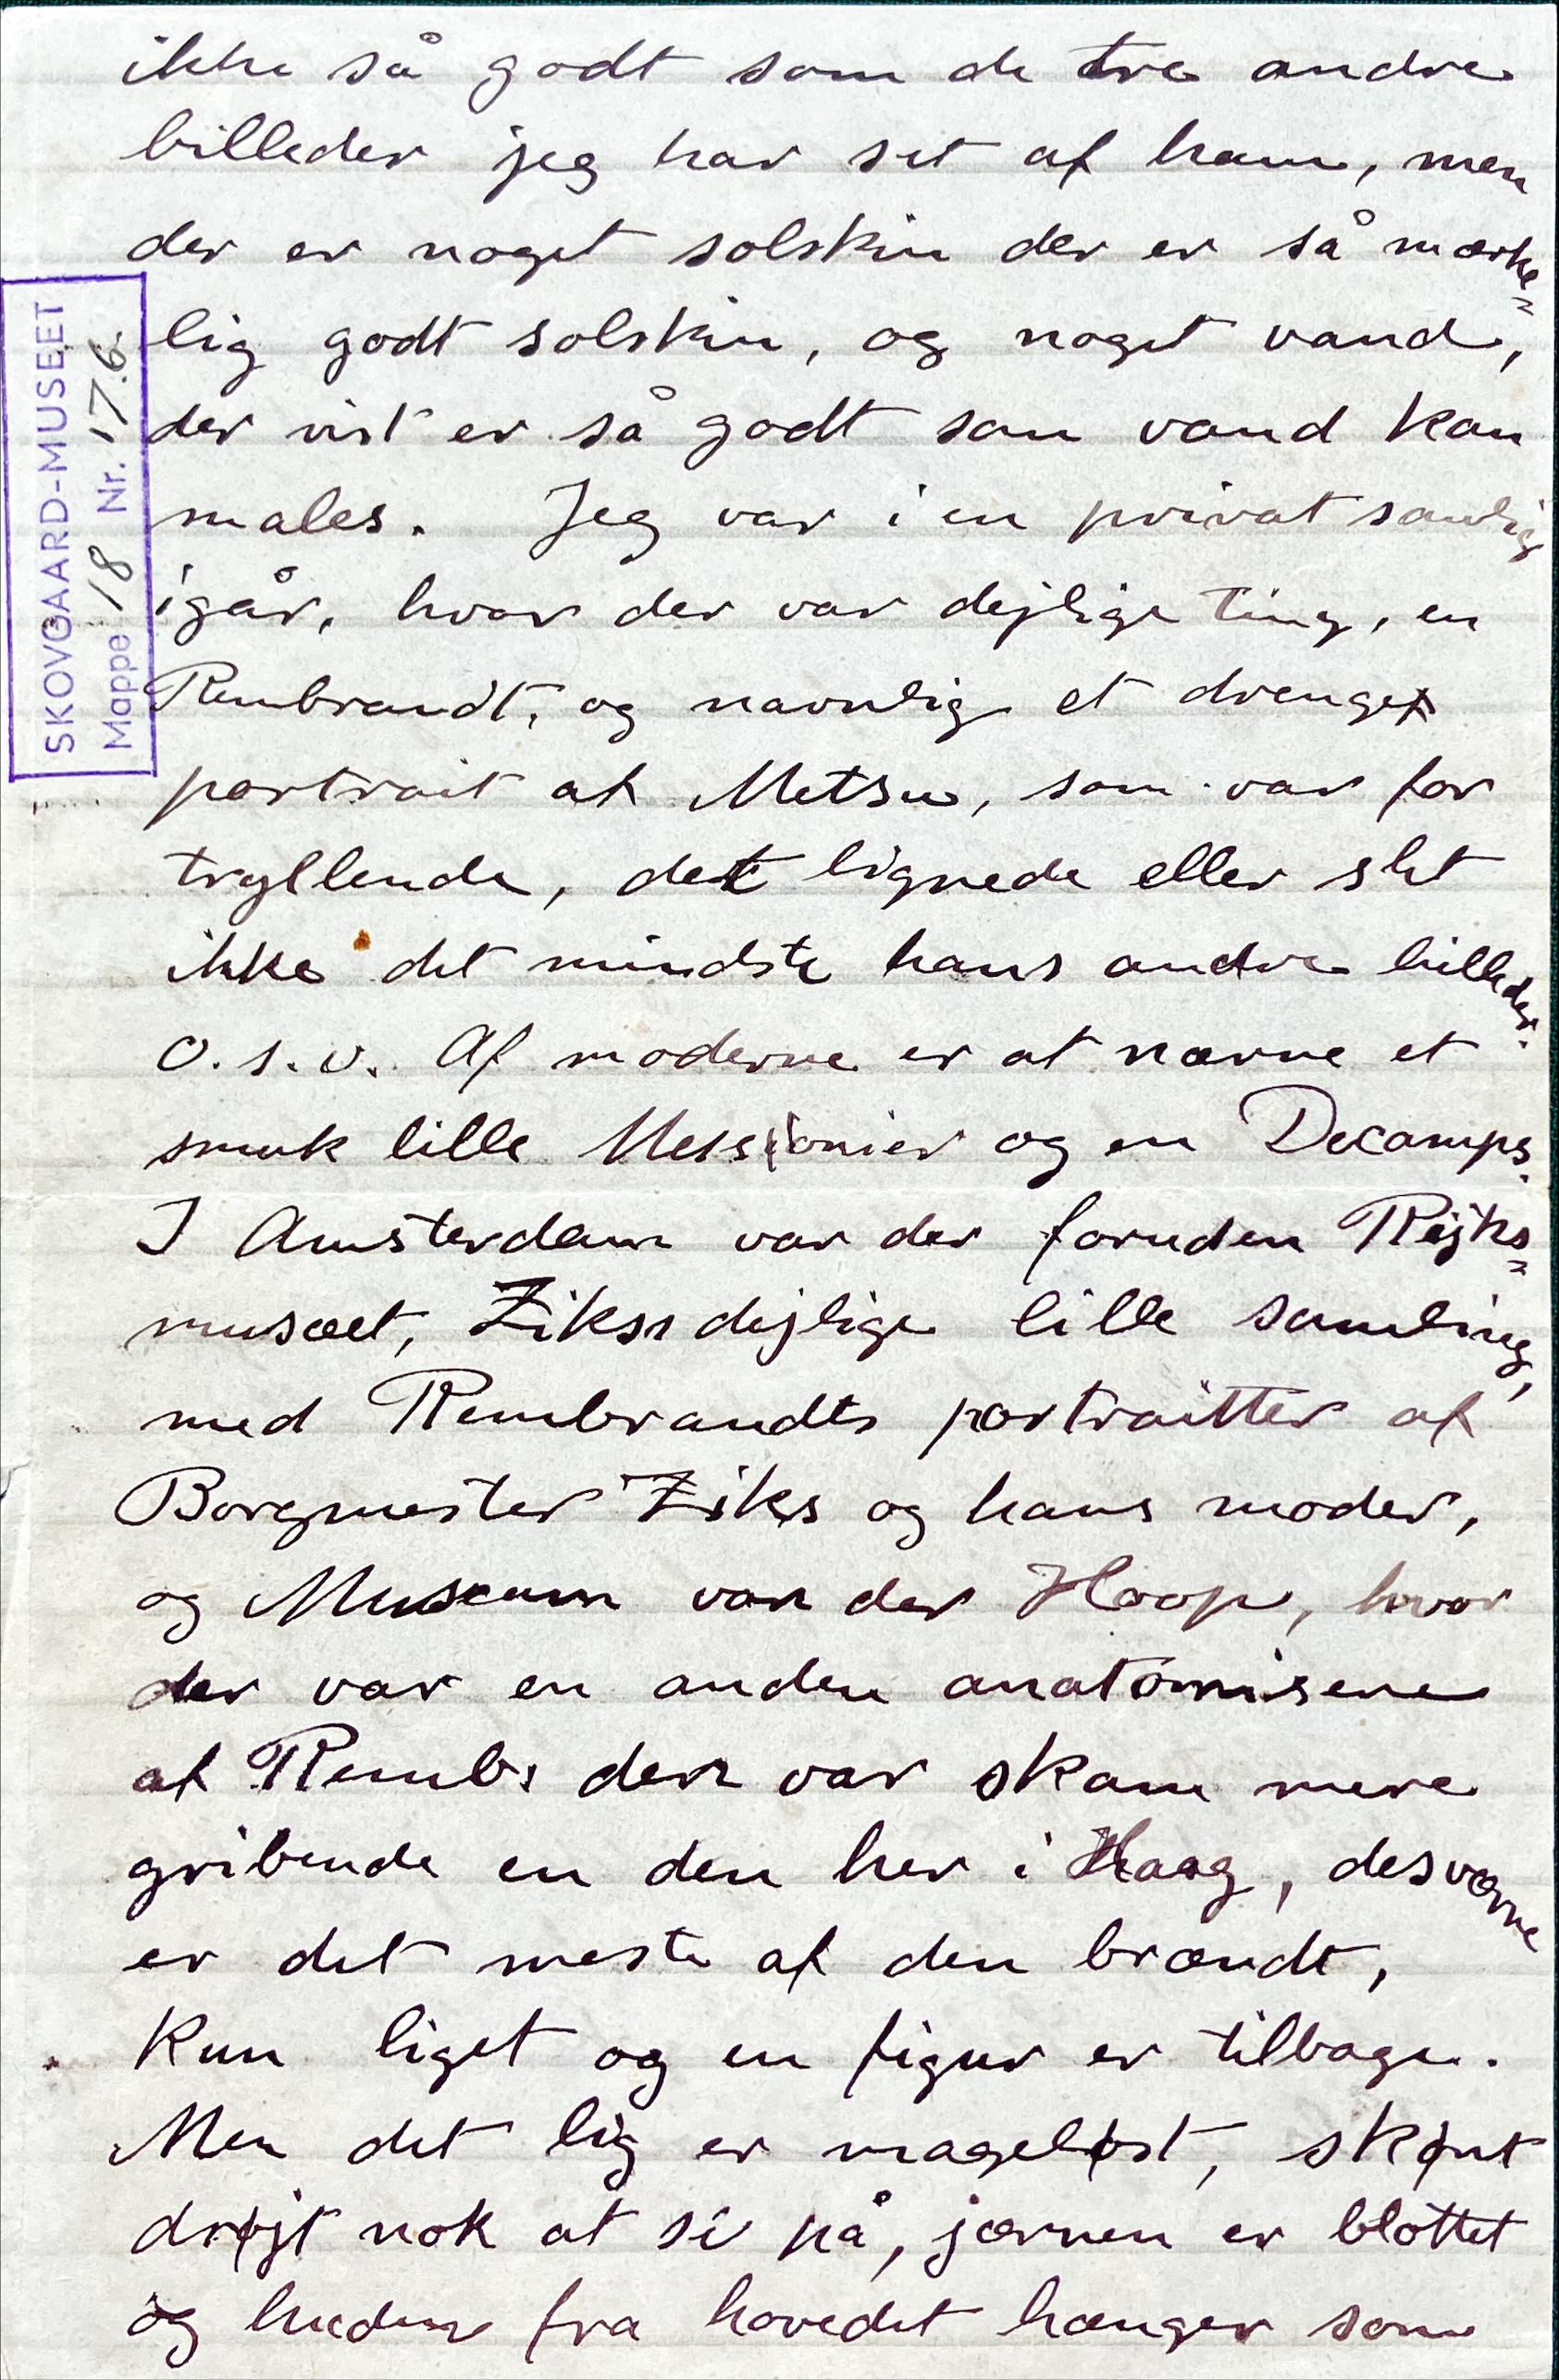 ikke så godt som de tre andre
billeder jeg har set af ham, men
der er noget solskin der er så mærke=
lig godt solskin, og noget vand,
der vist er så godt som vand kan
males. Jeg var i en privat samlig
igår, hvor der var dejlige ting, en
Rembrandt, og navnlig et drenge
portrait af Metsu, som var for
tryllende, det lignede eller slet
ikke det mindste hans andre billeder.
O.s.v. Af moderne er at nævne et
smuk lille Messionier og en Decamps.
I Amsterdam var der foruden Rejks=
musæet, Zikss dejlige lille samling,
med Rembrandts portraitter af
Borgmester Ziks og hans moder,
og Museum van der Hoop, hvor
der var en anden anatomisene
af Rembs den var skam mere
gribende en den her i Haag, desværre
er det meste af den brændt,
kun liget og en figur er tilbage.
Men det lig er mageløst, skønt
drøjt nok at se på, jærnen er blottet
og huden fra hovedet hænger som
SKOVGAARD-MUSEET
Mappe 18 Nr. 176.